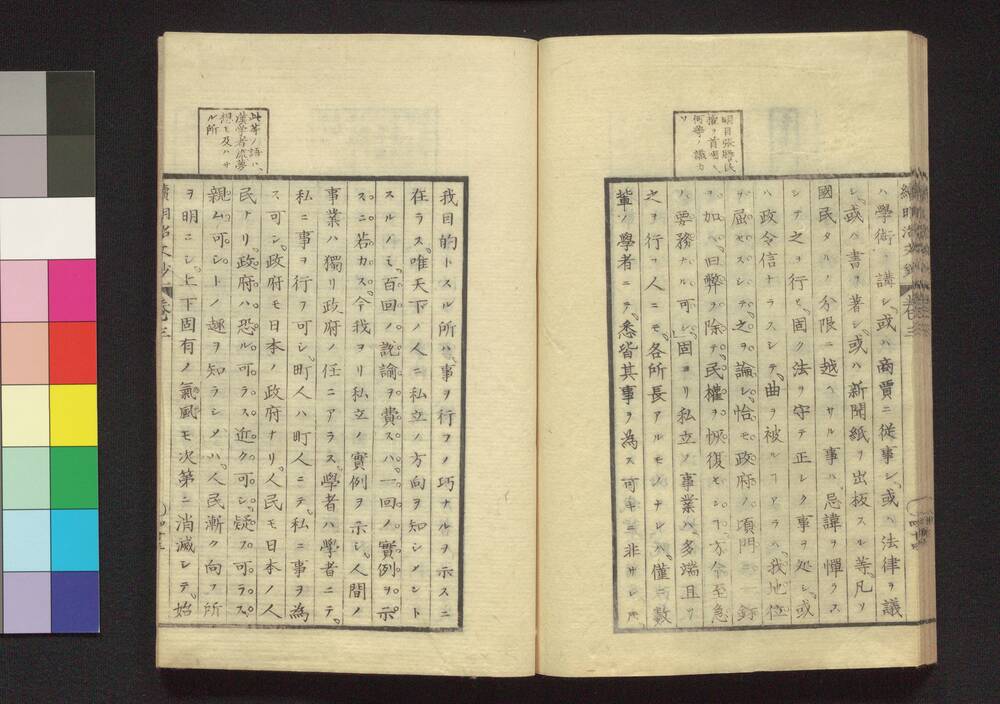 ハ學術ヲ講シ。或ハ商賈ニ從事シ。或ハ法律ヲ議
シ。或ハ書ヲ著シ。或ハ新聞紙ヲ出板スル等。凡ソ
國民タルノ分限ニ越ヘサル事ハ。忌諱ヲ憚ラス
シテ之ヲ行ヒ。固ク法ヲ守テ正シク事ヲ処シ。或
ハ政令信ナラスシテ。曲ヲ被ルヿアラハ。我地位
ヲ屈セズシテ之ヲ論シ。恰モ政府ノ頂門ニ一釘
ヲ加ヘ。旧弊ヲ除テ。民權ヲ恢復センヿ方今至急
ノ要務ナル可シ。固ヨリ私立ノ事業ハ。多端且ツ
之ヲ行フ人ニモ。各所長アルモノナレハ。僅ニ數
輩ノ學者ニテ。悉皆其事ヲ為ス可キニ非サレ𪜈。
我目的トスル所ハ。事ヲ行フノ巧ナルヲ示スニ
在ラス。唯天下ノ人ニ私立ノ方向ヲ知シメント
スルノミ。百回ノ説諭ヲ費スハ。一回ノ實例ヲ示
スニ若カス。今我ヨリ私立ノ實例ヲ示シ。人間ノ
事業ハ獨リ政府ノ任ニアラス。學者ハ學者ニテ。
私ニ事ヲ行フ可シ。町人ハ町人ニテ。私ニ事ヲ為
ス可シ。政府モ日本ノ政府ナリ。人民モ日本ノ人
民ナリ。政府ハ恐ル可ラス近ク可シ。疑フ可ラス。
親ム可シトノ趣ヲ知ラシメハ。人民漸ク向フ所
ヲ明ニシ。上下固有ノ氣風モ次第ニ消滅シテ。始
明目張膽民
權ヲ首唱ス
何等ノ識力
ソ
此等ノ語ハ。
漢學者流夢
想モ及ハサ
ル所
卷三